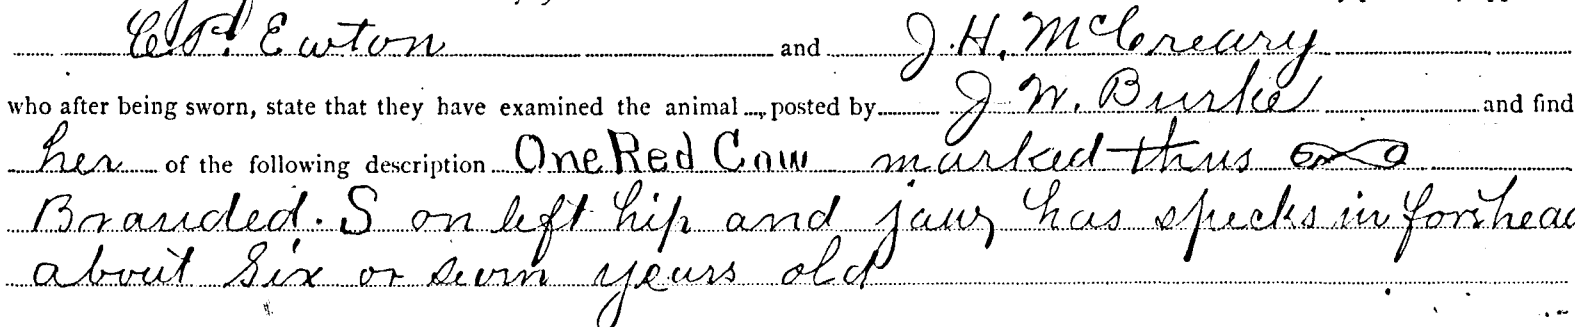 C. P. Ewton and J. H. McCreary
who after being sworn, state that they have examined the animal ...., posted by J. W. Burke and find
her of the following description One Red Cow marked thus
Branded. S on left hip and jaw, has specks in forehead
about six or seven years old